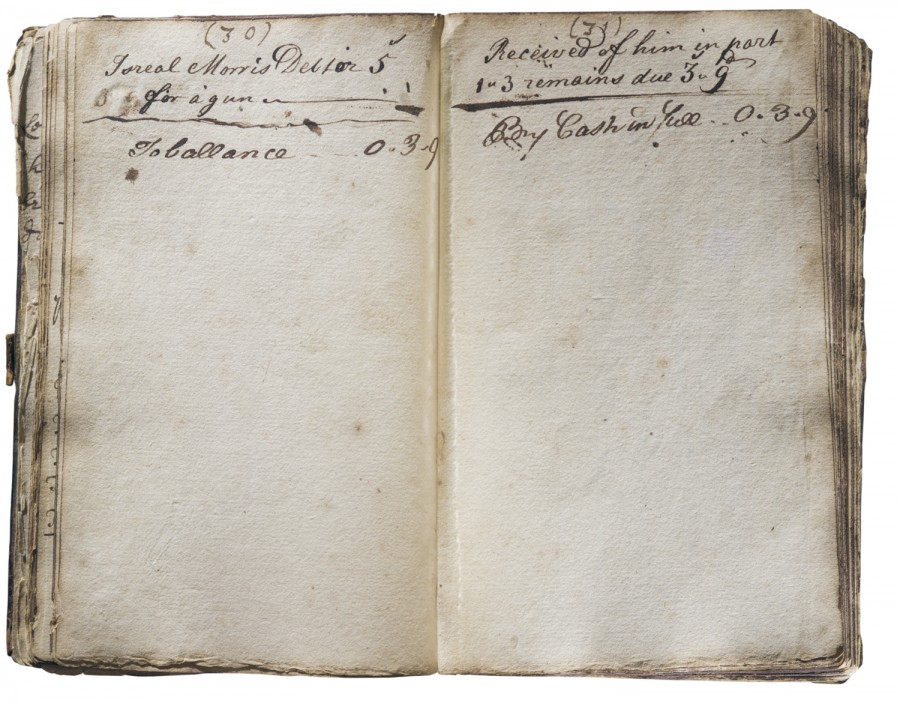 (30)
Isreal Morris Debtor 5
for a gun
To ballance 0.3.9
(31)
Received of him in part
1 " 3 remains due 3 " 9
By Cash in full 0.3.9